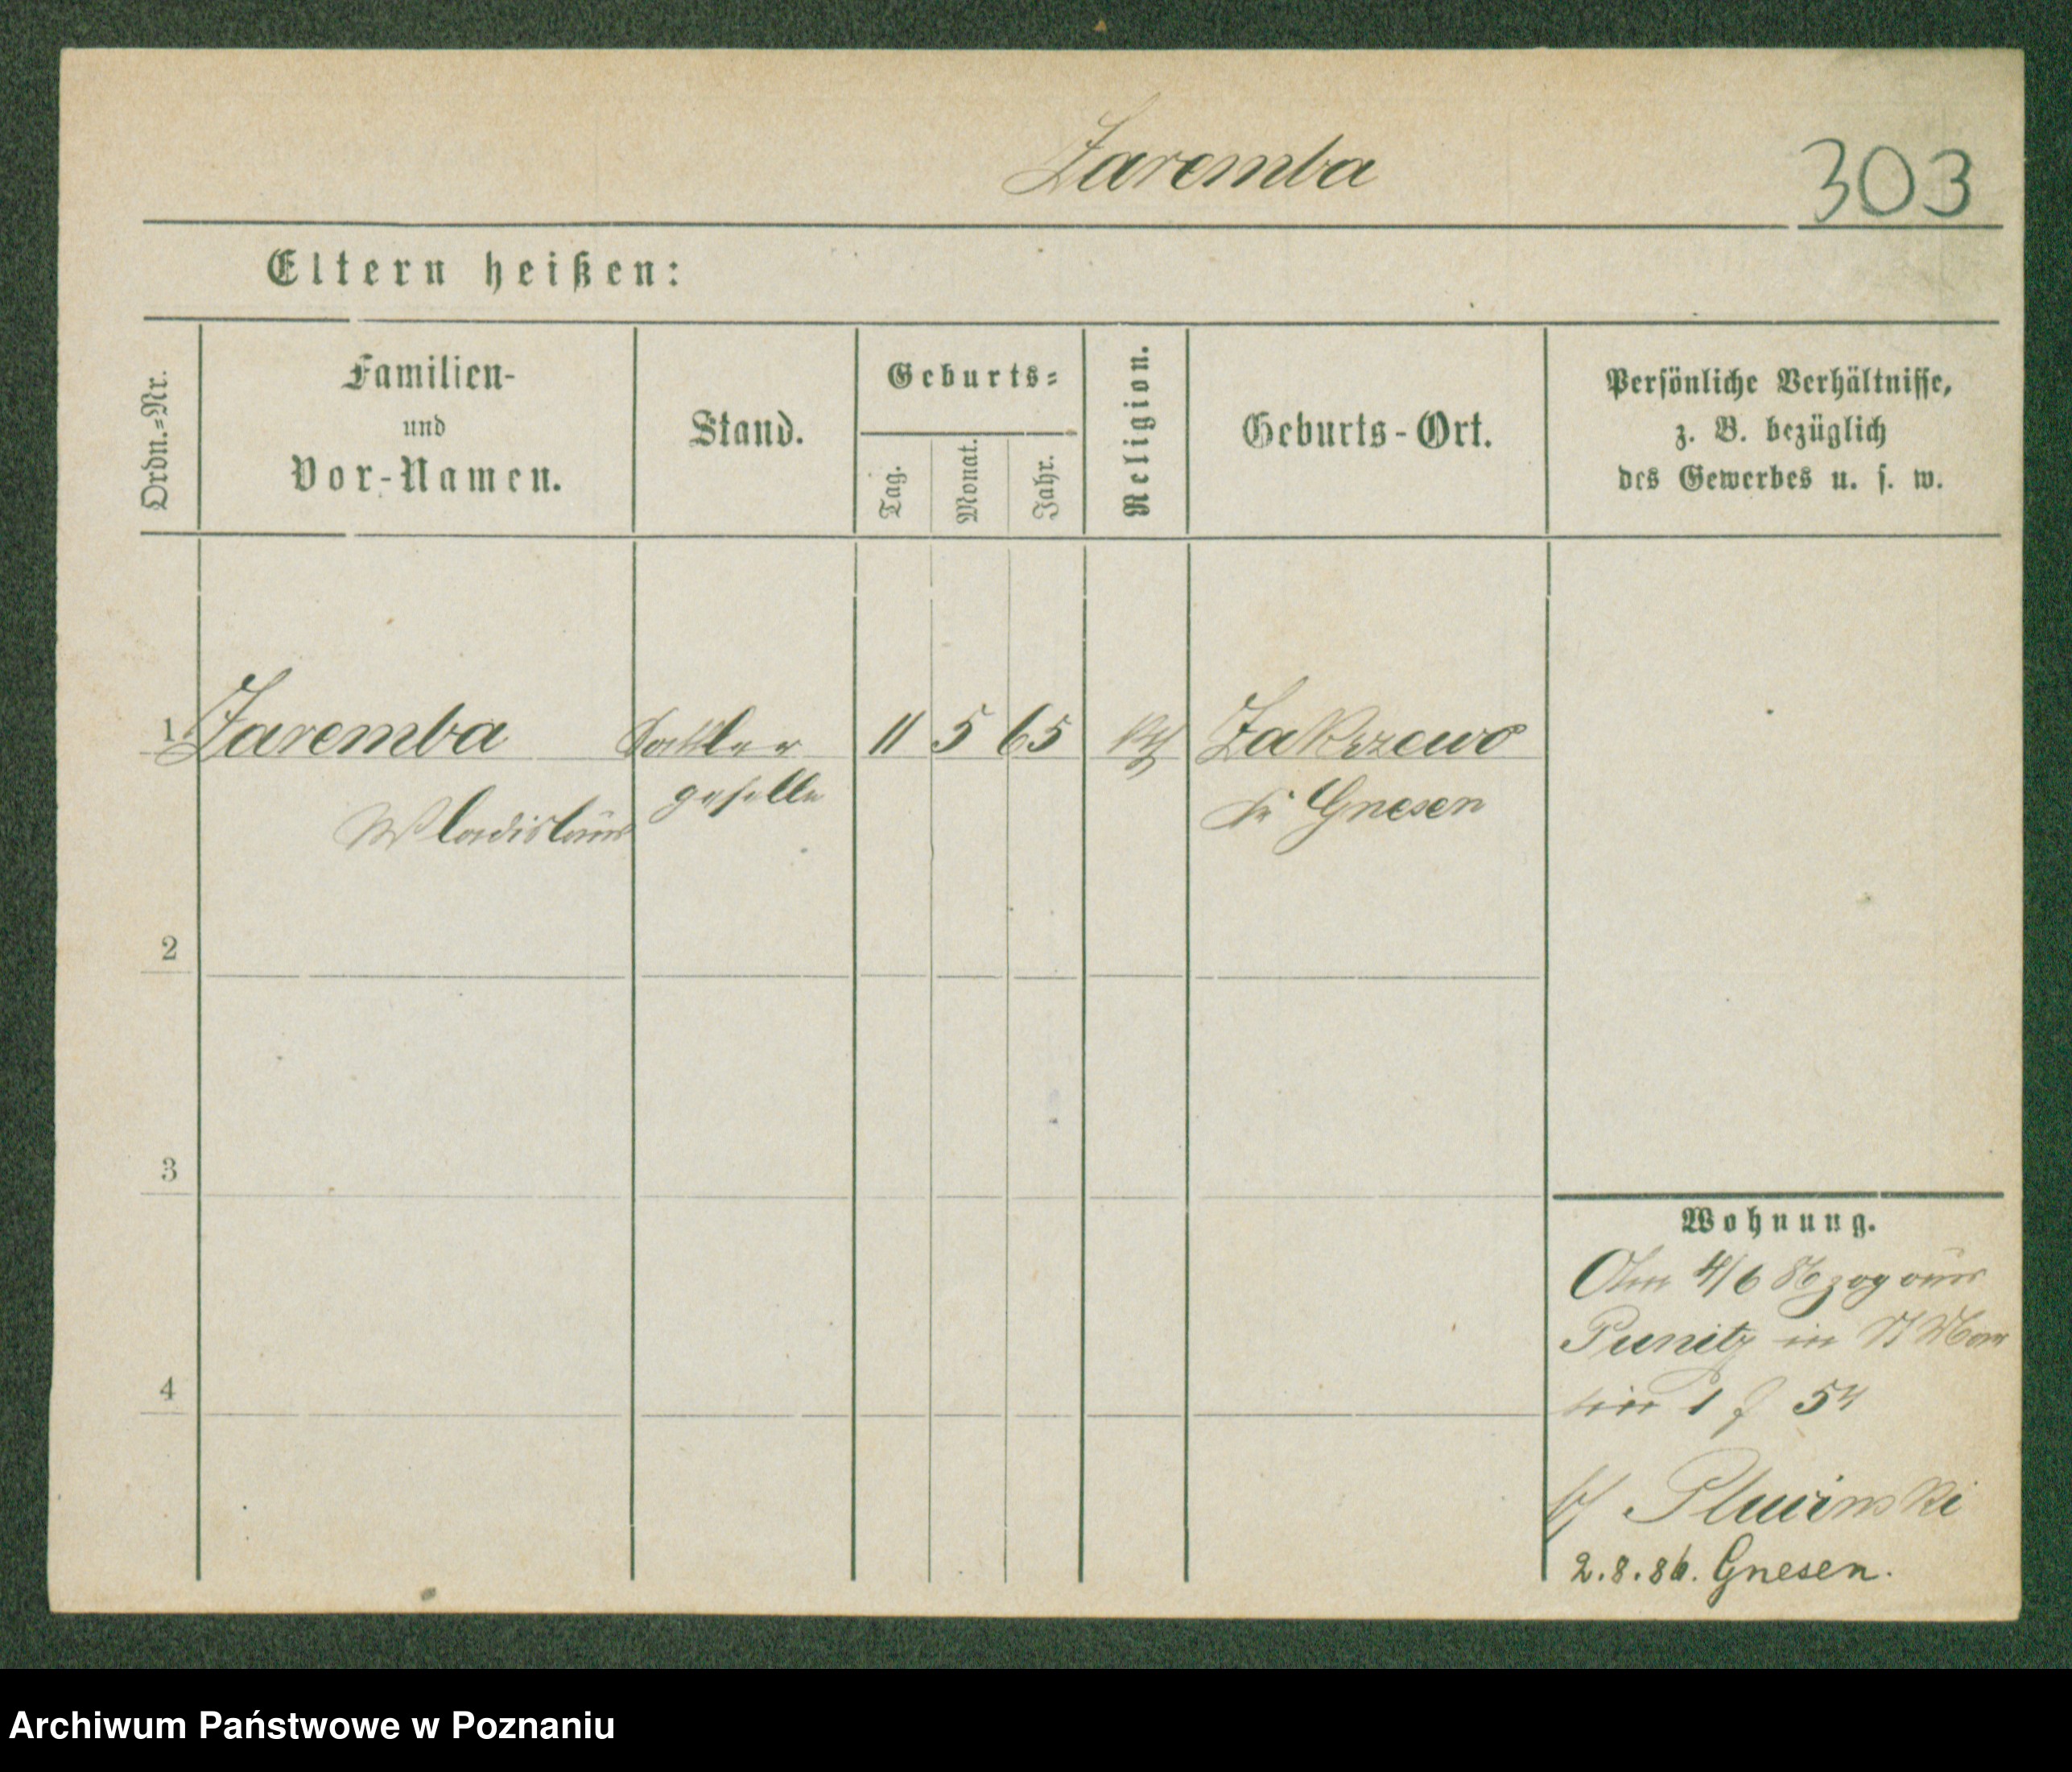 Zaremba
303
Eltern heißen:
Ordn.=Nr.
Familien-
und
Vor-Namen.
Stand.
Geburts=
Tag.
Monat.
Jahr.
Religion.
Geburts-Ort.
Persönliche Verhältnisse,
z. B. bezüglich
des Gewerbes u. s. w.
1 Zaremba Sattler 11 5 65 kth Zakrzewo
Wladislaus geselle Kr Gnesen
2
3
4
Wohnung.
Am 4/6 86 zog aus
Punitz in St Mar
tin 1 54
b/ Plucinski
2.8.86. Gnesen.
Archiwum Państwowe w Poznaniu